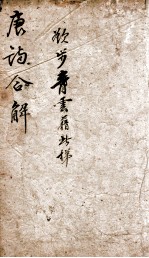 欲步青雲藉此梯
唐詩合解